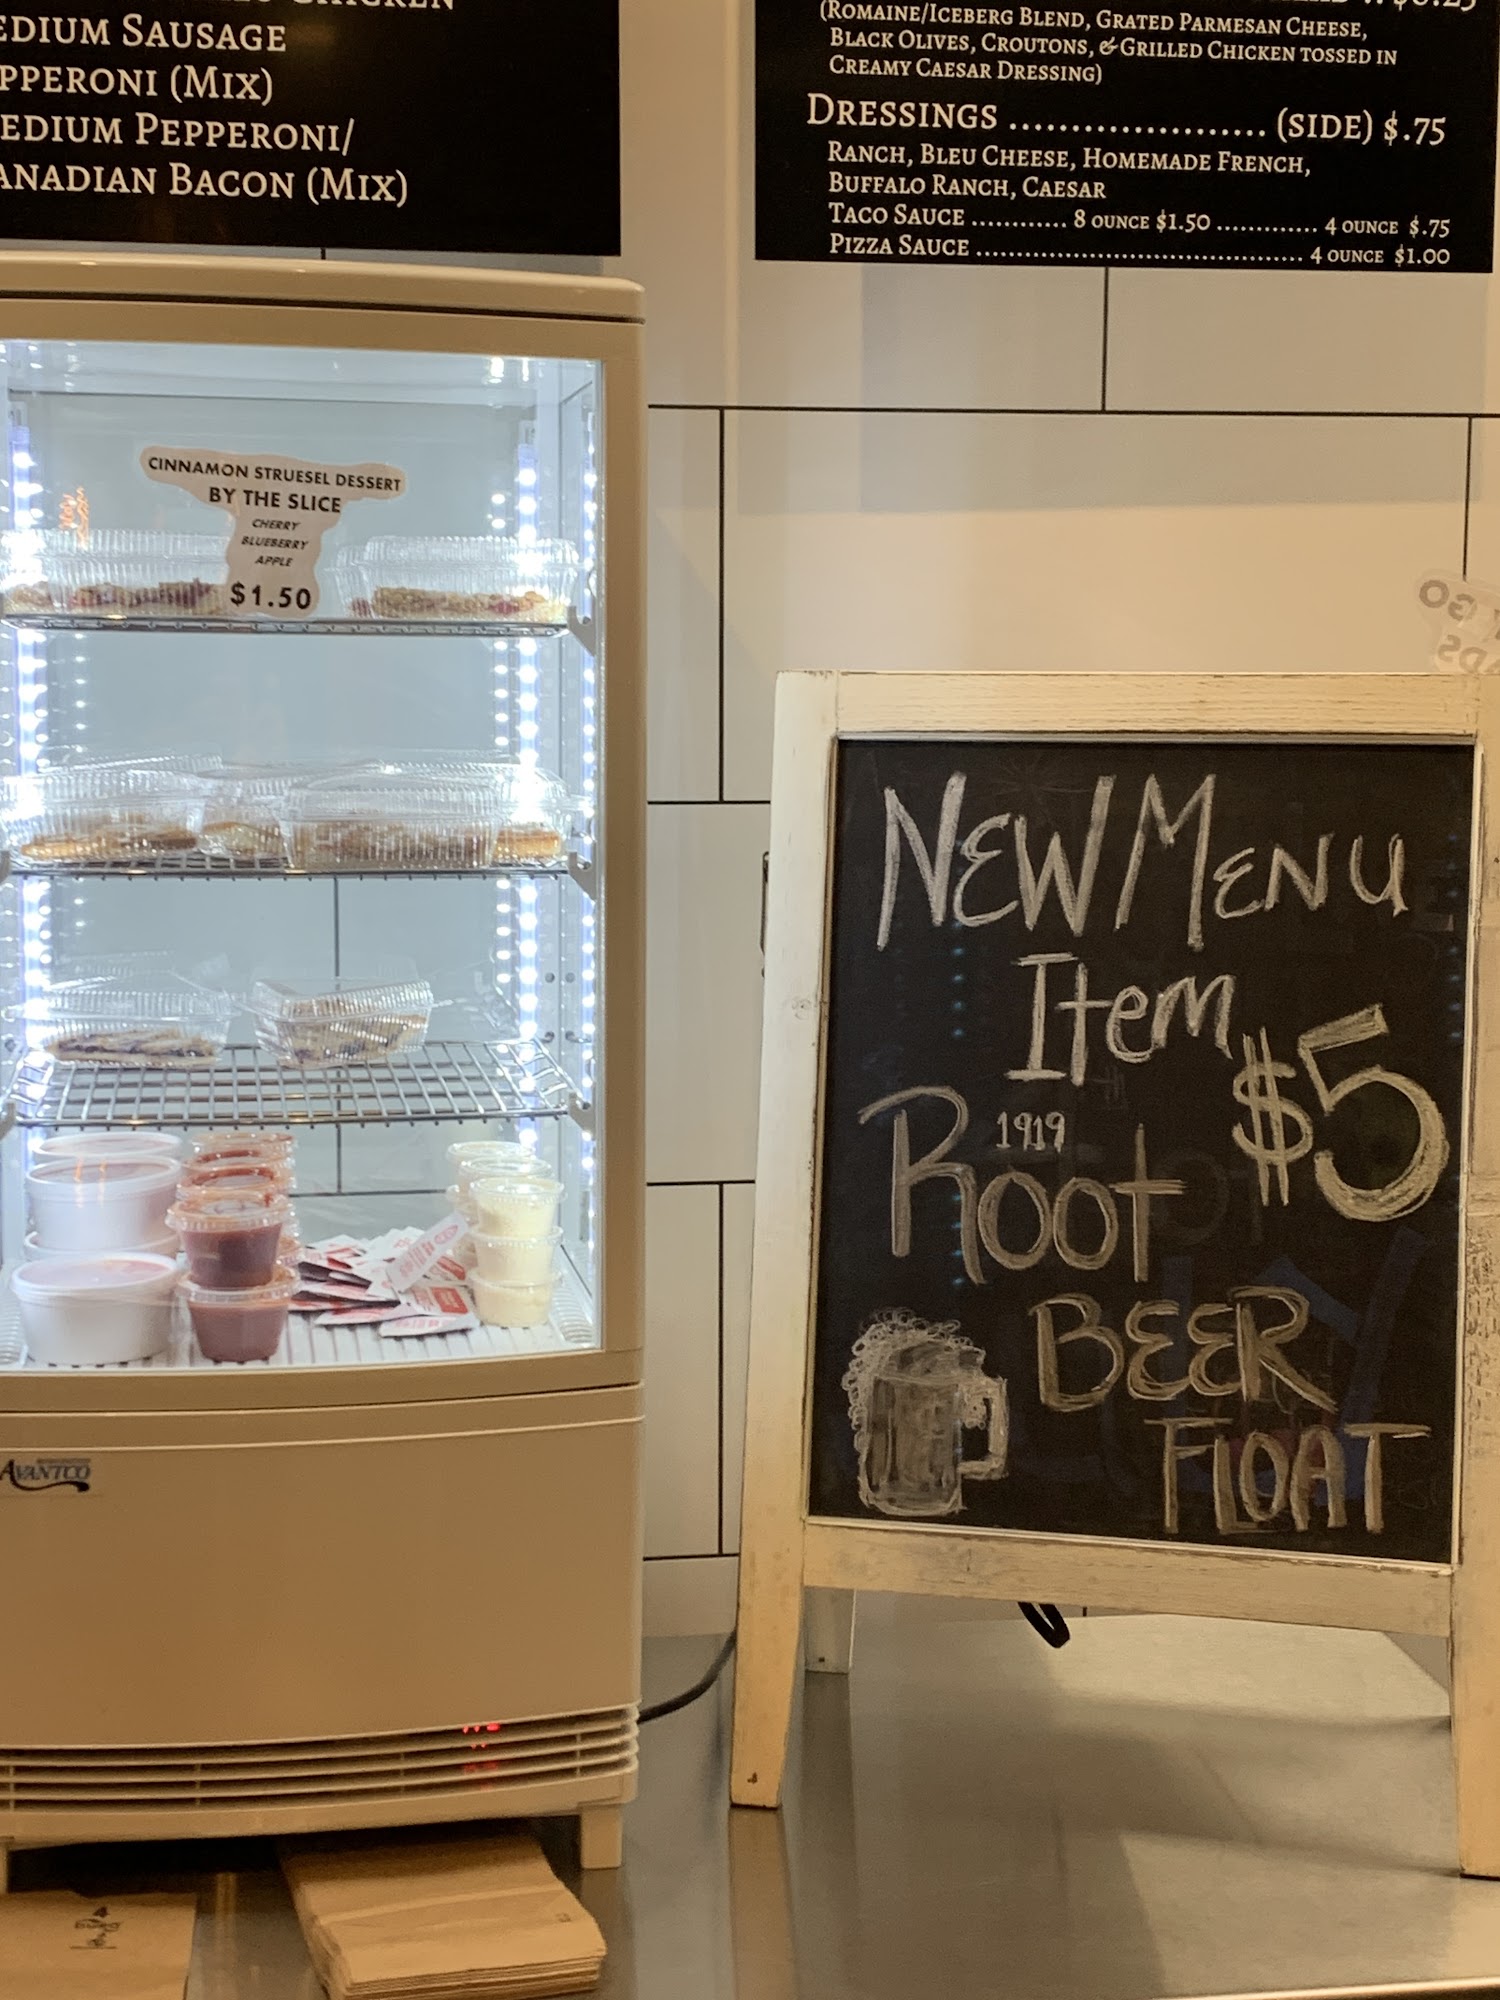 CHICKEN
EDIUM SAUSAGE
PPERONI (MIX)
EDIUM PEPPERONI/
ANADIAN BACON (MIX)
(ROMAINE/ICEBERG BLEND, GRATED PARMESAN CHEESE,
BLACK OLIVES, CROUTONS, & GRILLED CHICKEN TOSSED IN
CREAMY CAESAR DRESSING)
DRESSINGS ..................... (SIDE) $.75
RANCH, BLEU CHEESE, HOMEMADE FRENCH,
BUFFALO RANCH, CAESAR
TACO SAUCE ............ 8 OUNCE $1.50 ............. 4 OUNCE $.75
PIZZA SAUCE .......................................... 4 OUNCE $1.00
CINNAMON STRUESEL DESSERT
BY THE SLICE
CHERRY
BLUEBERRY
APPLE
$1.50
AVANTCO
NEW MENU
Item
$5
1919
ROOT
BEER
FLOAT